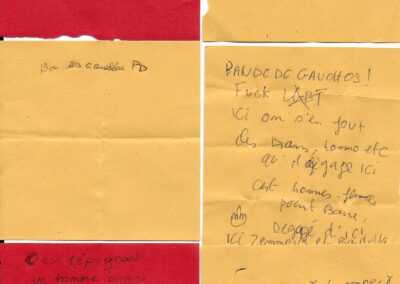 Bon les enculées PD
BANDE DE GAUCHOS !
FUCK LGBT
ICI on s'en fout
des trans, homo etc
qu'il dégage ICI
c'est hommes - femmes
point Barre,
Dégagé d'ici
ICI Zemmour et Bardella
C'est répugnant
un homme